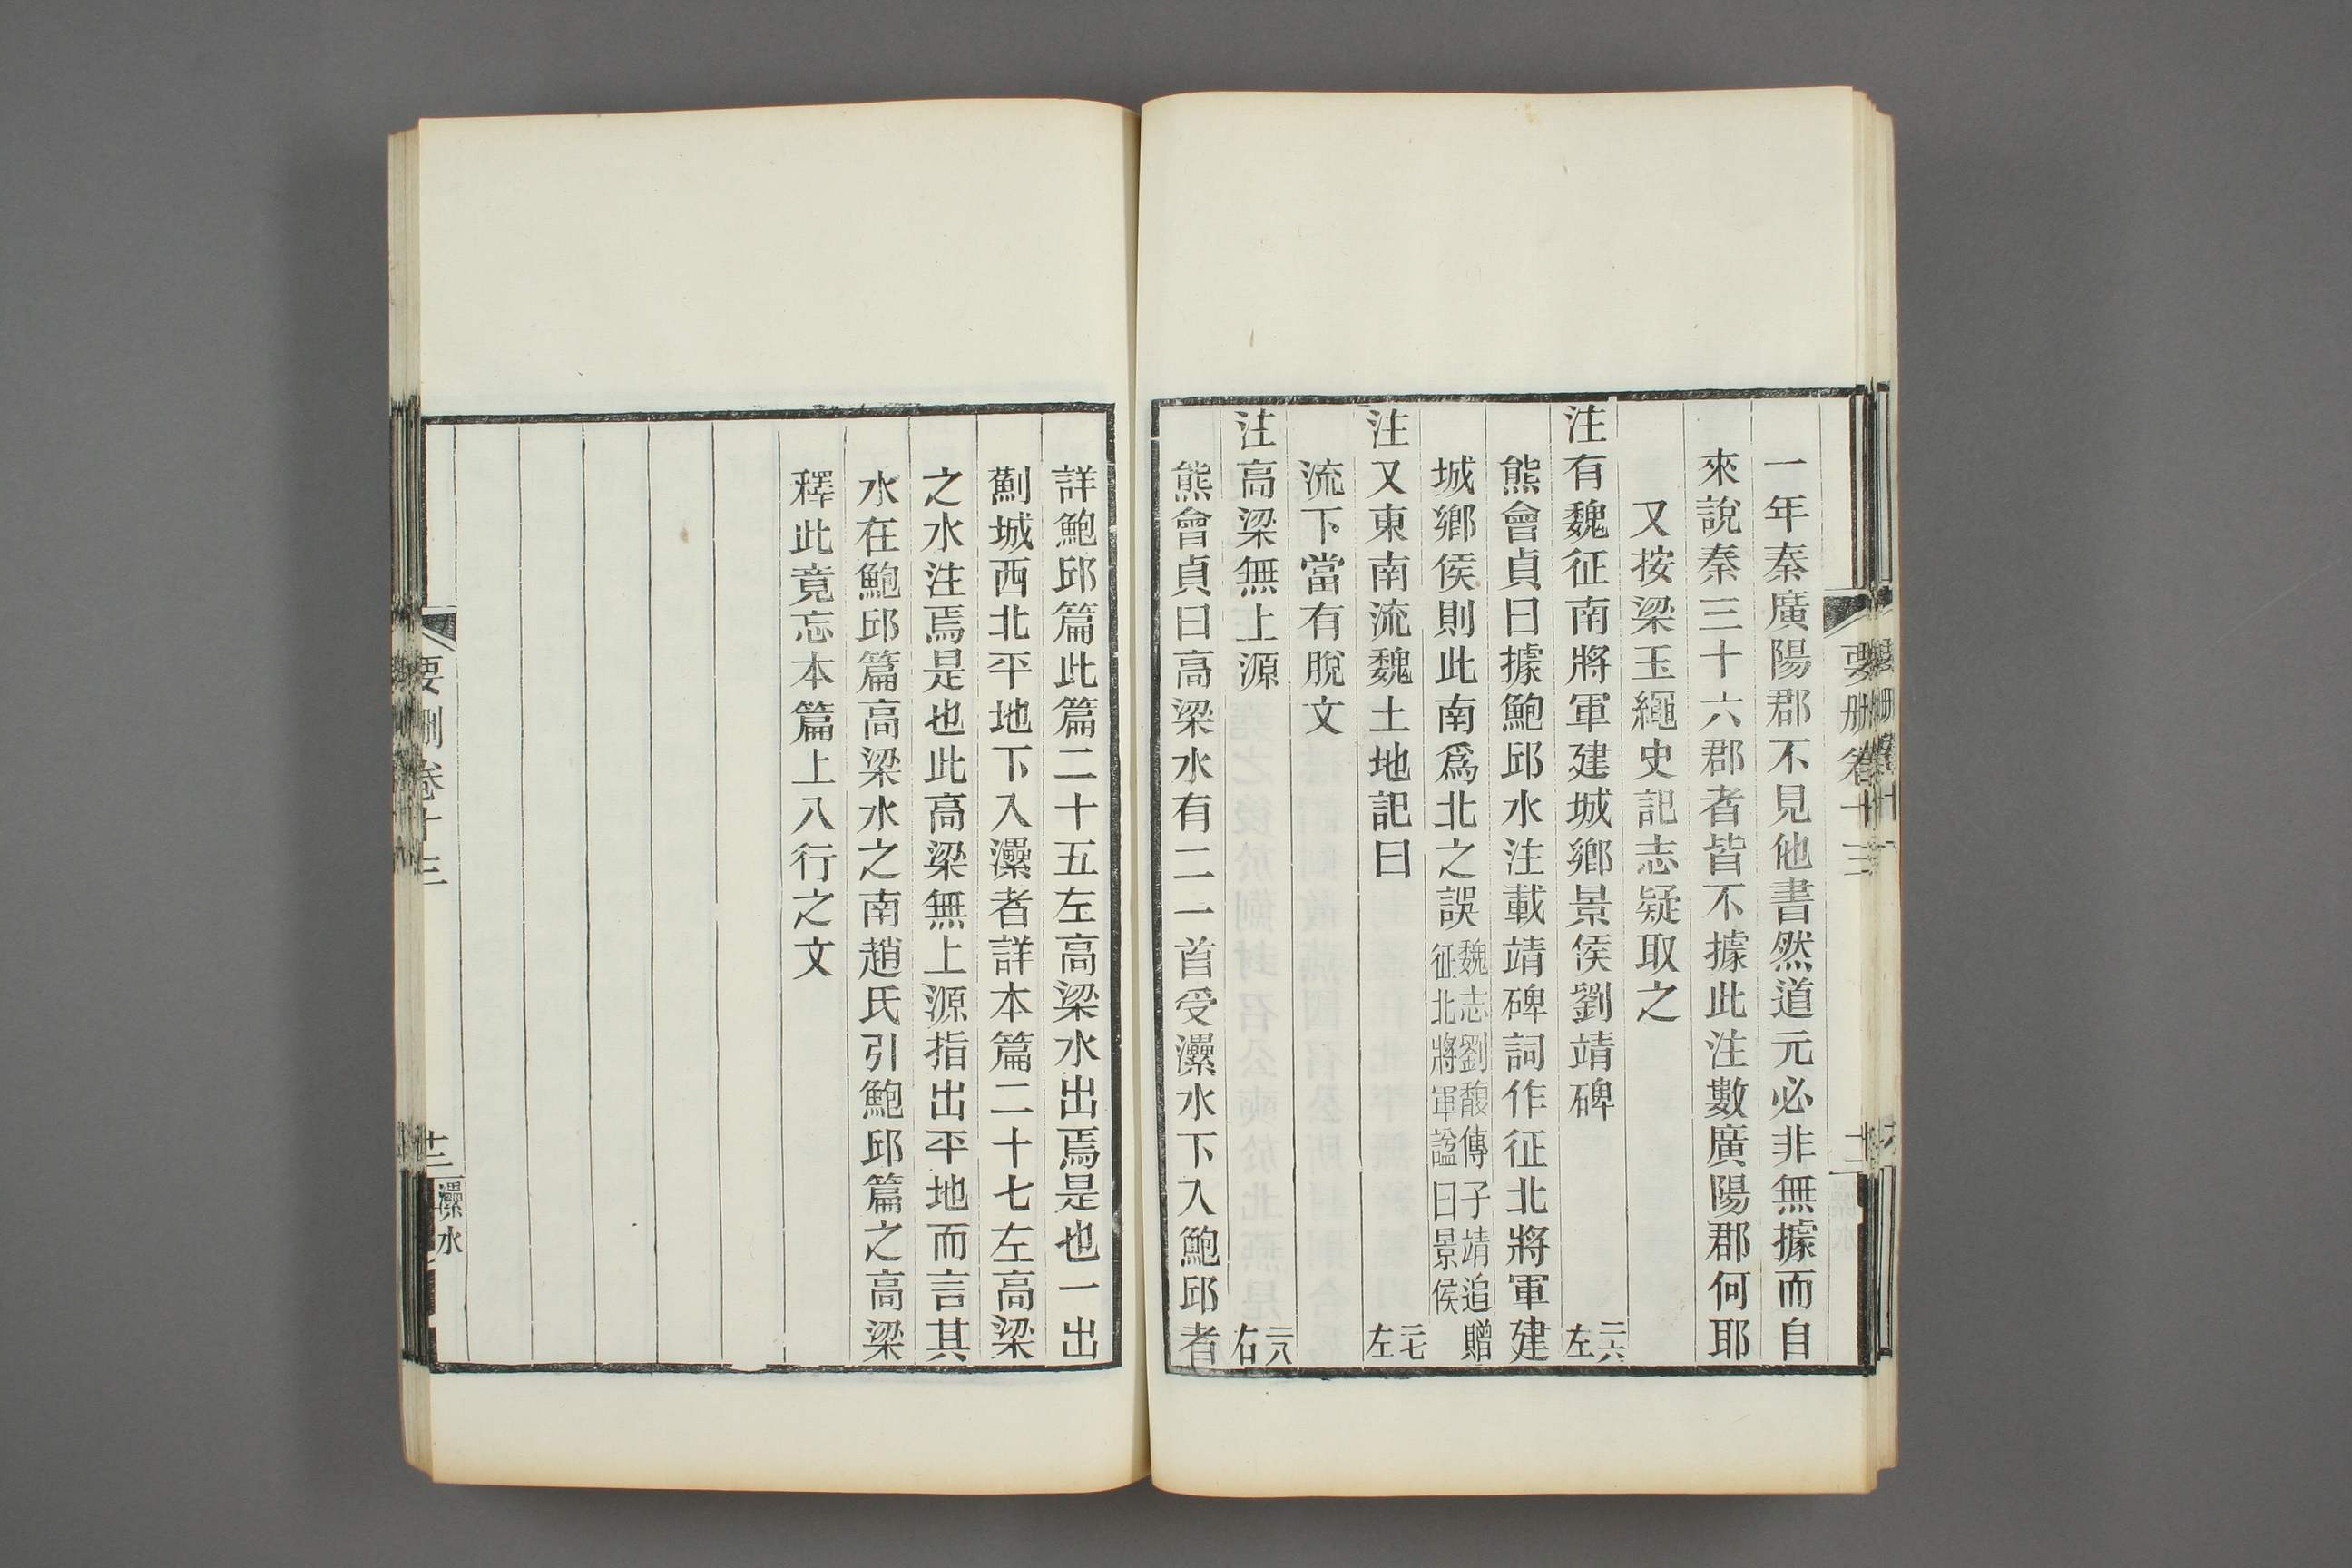 要刪卷十三
十二
一年秦廣陽郡不見他書然道元必非無據而自
來說秦三十六郡者皆不據此注數廣陽郡何耶
又按梁玉繩史記志疑取之
注有魏征南將軍建城鄉景侯劉靖碑 二六左
熊會貞曰據鮑邱水注載靖碑詞作征北將軍建
城鄉侯則此南爲北之誤魏志劉馥傳子靖追贈征北將軍諡曰景侯
注又東南流魏土地記曰 二七左
流下當有脫文
注高梁無上源 二八右
熊會貞曰高梁水有二一首受㶟水下入鮑邱者
詳鮑邱篇此篇二十五左高梁水出焉是也一出
薊城西北平地下入㶟者詳本篇二十七左高梁
之水注焉是也此高梁無上源指出平地而言其
水在鮑邱篇高梁水之南趙氏引鮑邱篇之高梁
釋此竟忘本篇上八行之文
要刪卷十三
十二
㶟水